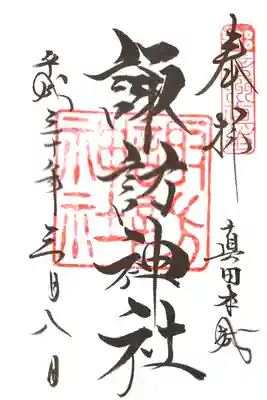 奉拝
真田本城
諏訪神社
平成三十年 三月八日